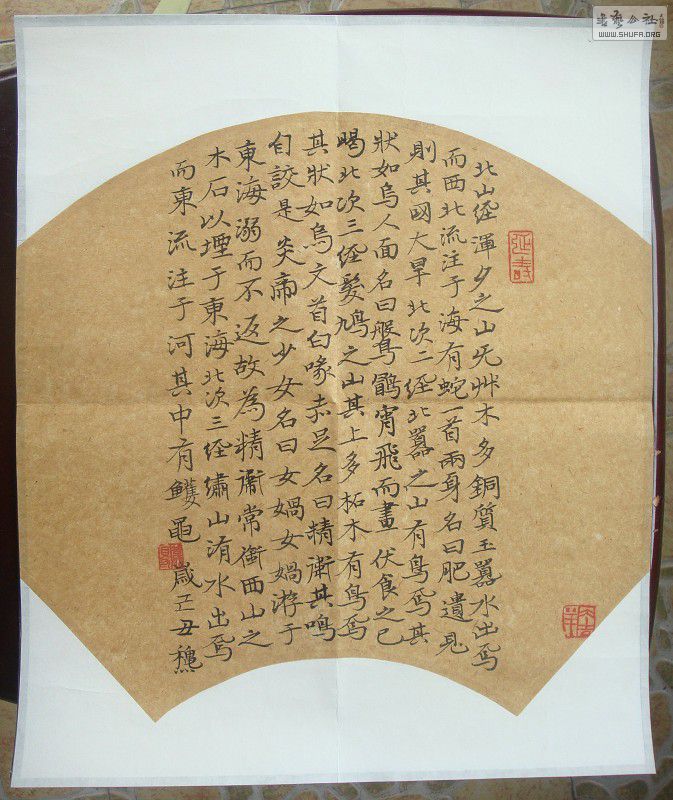 北山經渾夕之山无艸木多銅質玉嚻水出焉
而西北流注于海有蛇一首兩身名曰肥遺見
則其國大旱北次二經北嚻之山有鳥焉其
狀如烏人面名曰宵飛而晝伏食之已
暍北次三經髮鳩之山其上多柘木有鳥焉
其狀如烏文首白喙赤足名曰精衛其鳴
自詨是炎帝之少女名曰女媧女媧游于
東海溺而不返故為精衛常銜西山之
木石以堙于東海北次三經繡山洧水出焉
而東流注于河其中有鱯黽 歲己丑穐
延壽
書藝公社
WWW.SHUFA.ORG